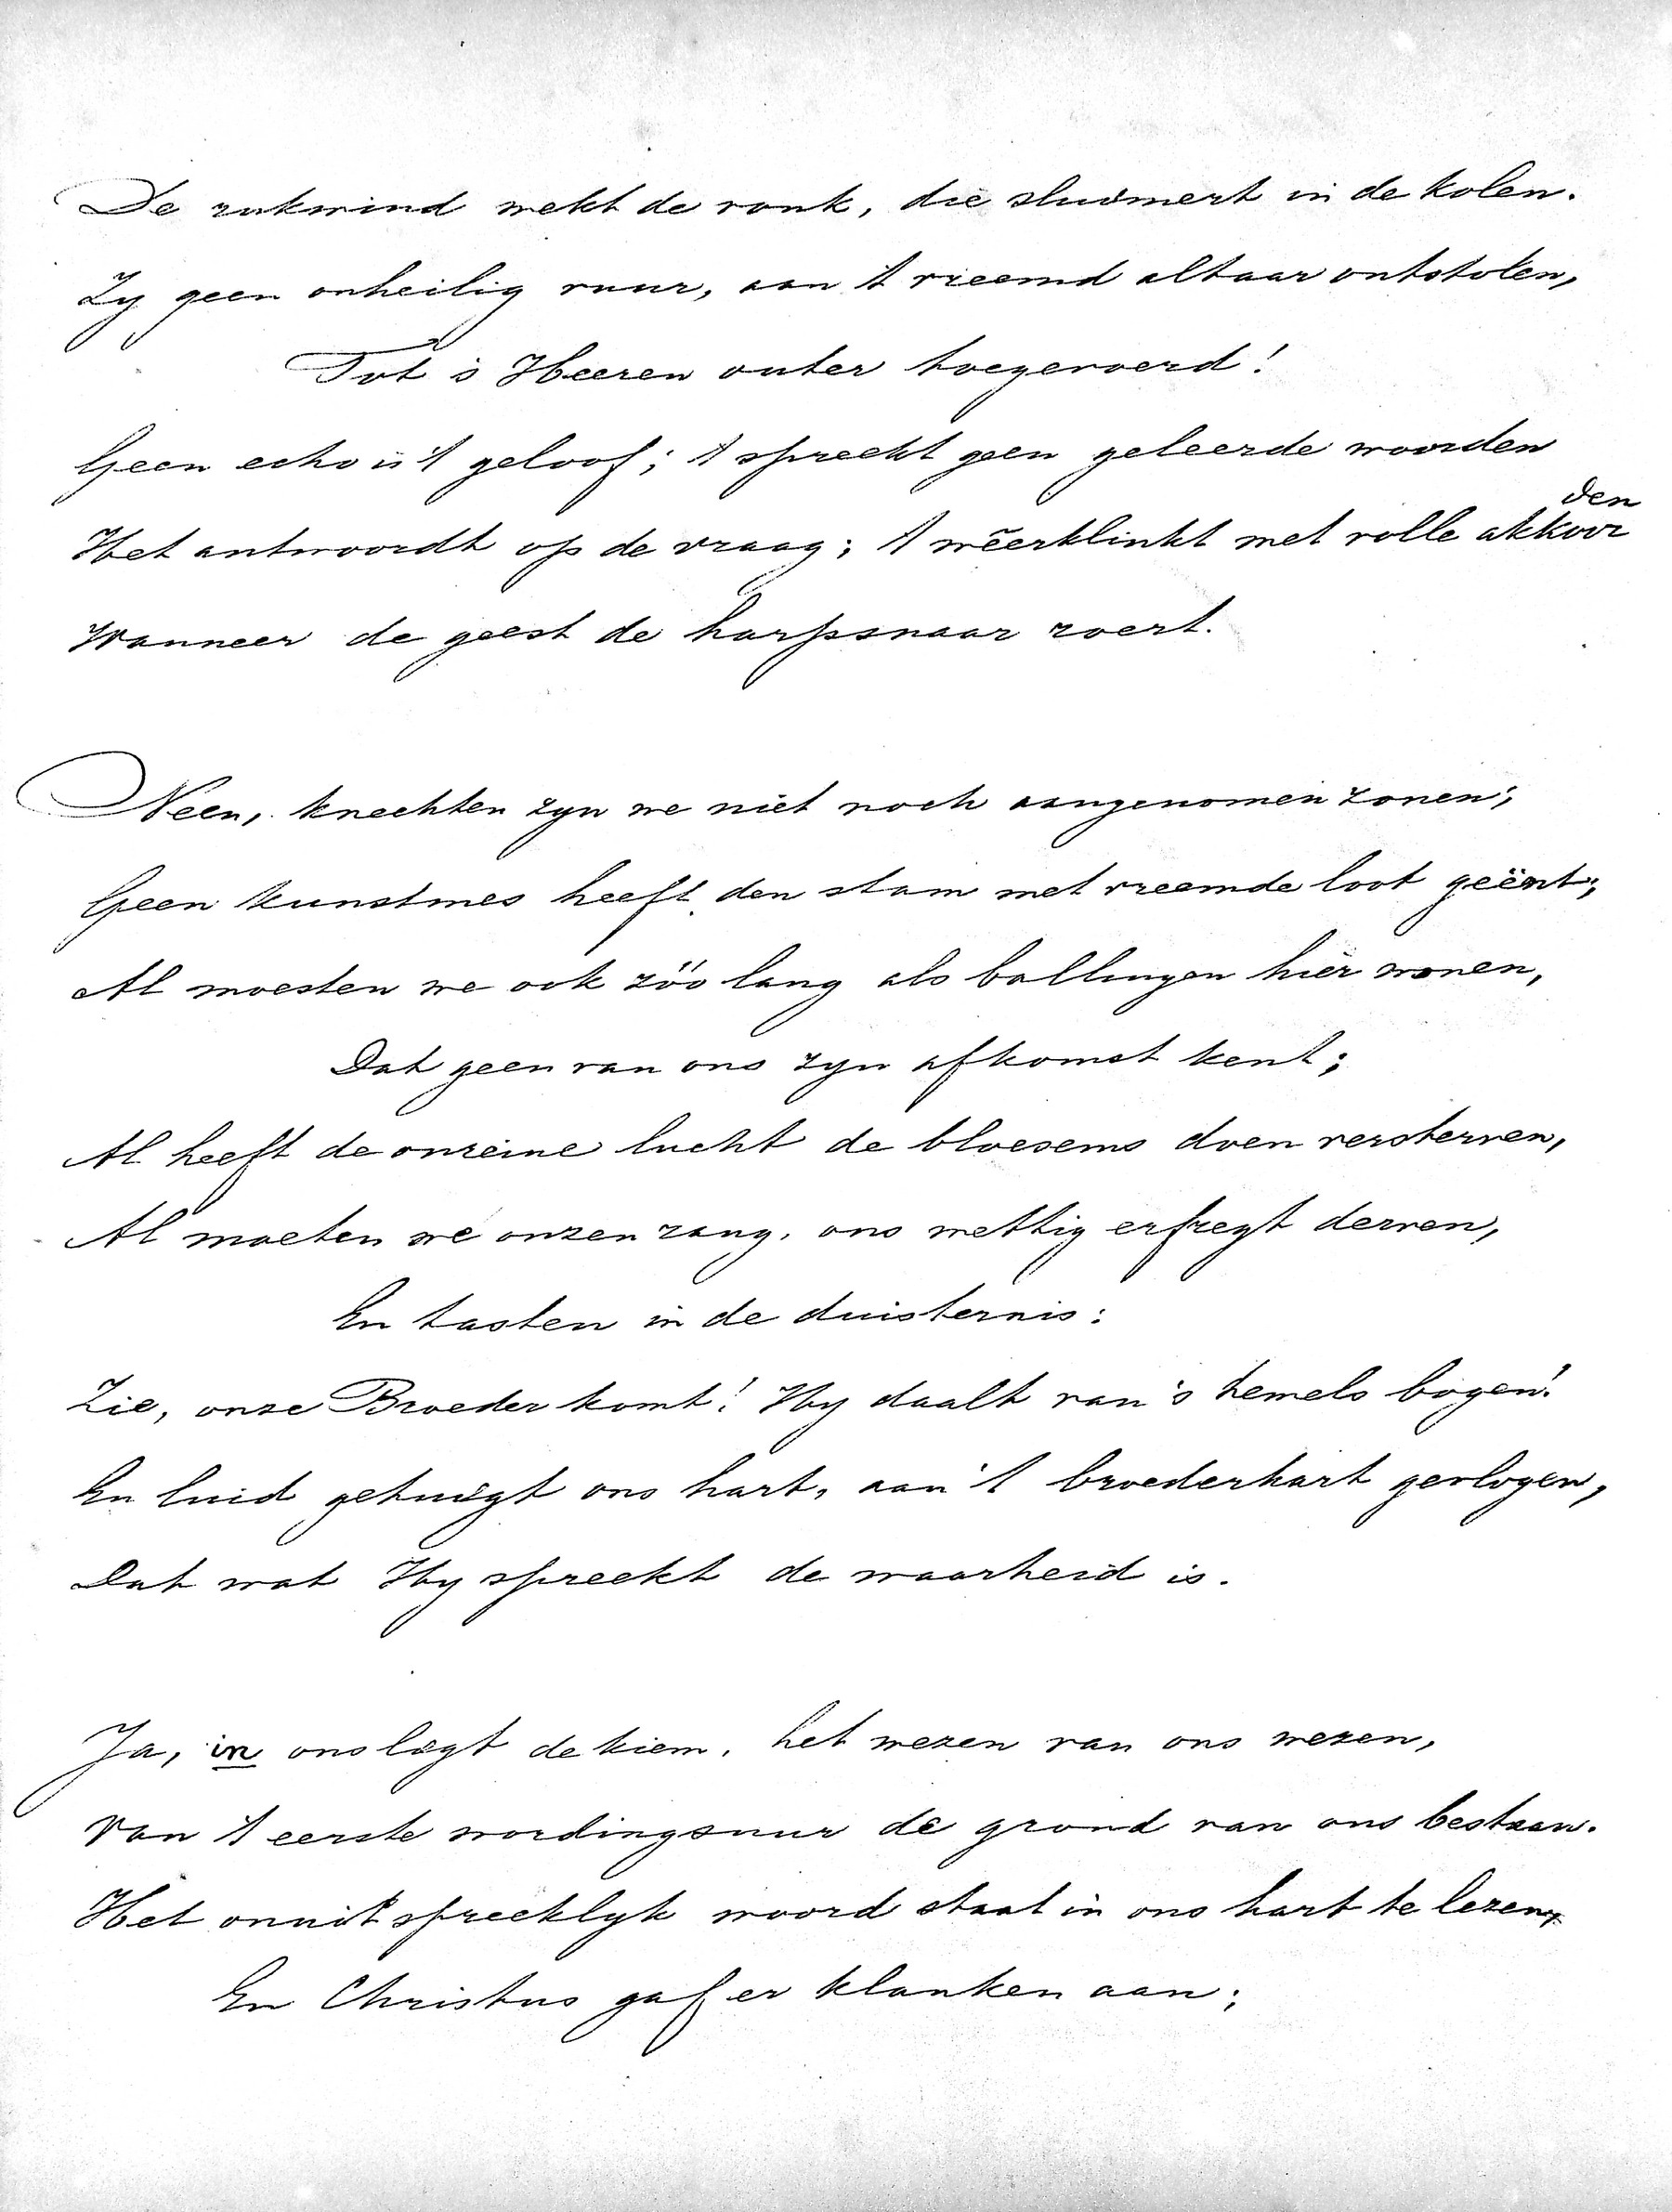 De rukwind wekt de vonk, die sluimert in de kolen.
Zy geen onheilig vuur, aan 't vreemd altaar ontstolen,
Tot 's Heeren outer toegevoerd!
Geen echo is 't geloof; 't spreekt geen geleerde woorden
Het antwoordt op de vraag; 't wëerklinkt met volle akkoorden
Wanneer de geest de harpsnaar roert.
Neen, knechten zyn we niet noch aangenomen zonen;
Geen kunstmes heeft den stam met vreemde loot geënt;
Al moesten we ook zóó lang als ballingen hier wonen,
Dat geen van ons zyn afkomst kent;
Al heeft de onreine lucht de bloesems doen versterven,
Al moeten we onzen rang, ons wettig erfregt derven,
En tasten in de duisternis:
Zie, onze Broeder komt! Hy daalt van 's hemels bogen!
En luid getuigt ons hart, aan 't broederhart gevlogen,
Dat wat Hy spreekt de waarheid is.
Ja, in ons ligt de kiem, het wezen van ons wezen,
Van 't eerste wordingsuur de grond van ons bestaan.
Het onuitspreeklyk woord staat in ons hart te lezen,
En Christus gaf er klanken aan;